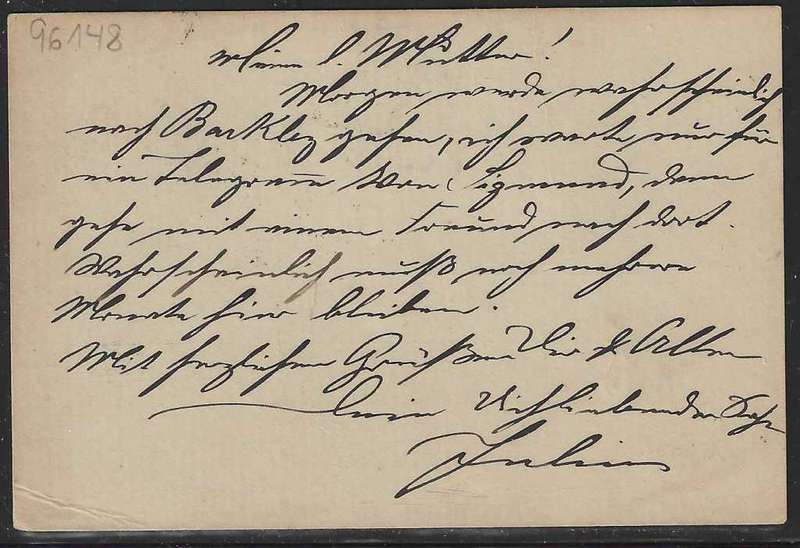 96148
Meine l. Mutter!
Morgen werde wahrscheinlich
nach Barkley gehen, ich warte nur für
ein Telegram von Sigmund, dann
gehe mit einem Freund nach dort.
Wahrscheinlich muß noch mehrere
Monate hier bleiben.
Mit herzlichen Grüßen Dir & Allen
Dein Dichliebender Sohn
Julius